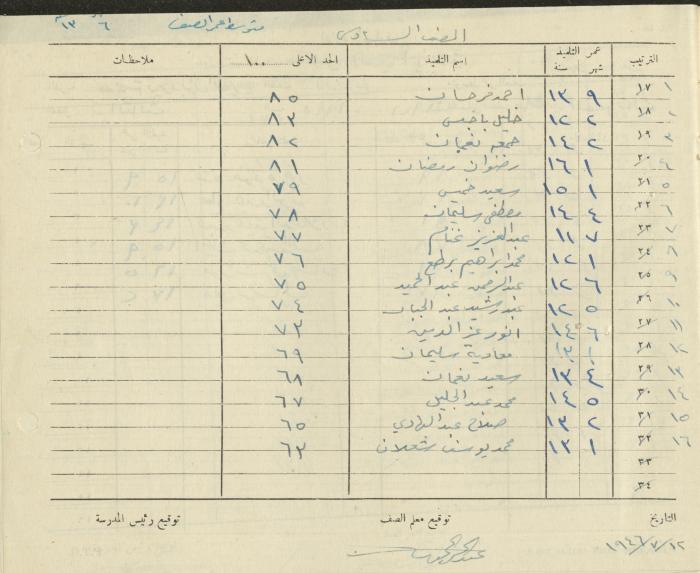 متوسط عمر الصف ٦ ١٣
الصف السادس
الترتيب عمر التلميذ شهر سنة اسم التلميذ الحد الاعلى ١٠٠ ملاحظات
١ ١٧ ٩ ١٣ احمد فرحان ٨٥
٢ ١٨ ٢ ١٢ خليل ٨٣
٣ ١٩ ٢ ١٤ جمعه نعمان ٨٢
٤ ٢٠ ١ ١٦ رضوان رمضان ٨١
٥ ٢١ ١ ١٥ سعيد خميس ٧٩
٦ ٢٢ ٤ ١٤ مصطفى سليمان ٧٨
٧ ٢٣ ٧ ١١ عبد العزيز غنام ٧٧
٨ ٢٤ ١ ١٢ محمد ابراهيم ٧٦
٩ ٢٥ ٦ ١٢ عبد الرحمن عبد الحميد ٧٥
١٠ ٢٦ ٥ ١٢ عبد رشيد عبد الجبار ٧٤
١١ ٢٧ ٦ ١٤ انور عز الدين ٧٣
١٢ ٢٨ ١ ١٣ معاوية سليمان ٦٩
١٣ ٢٩ ٤ ١٣ سعيد نعمان ٦٨
١٤ ٣٠ ٥ ١٤ محمد عبد الجليل ٦٧
١٥ ٣١ ٢ ١٣ صلاح عبد الهادي ٦٥
١٦ ٣٢ ١ ١٣ محمد يوسف شعلان ٦٣
٣٣
٣٤
التاريخ توقيع معلم الصف توقيع رئيس المدرسة
١٩٤٦/٧/١٢